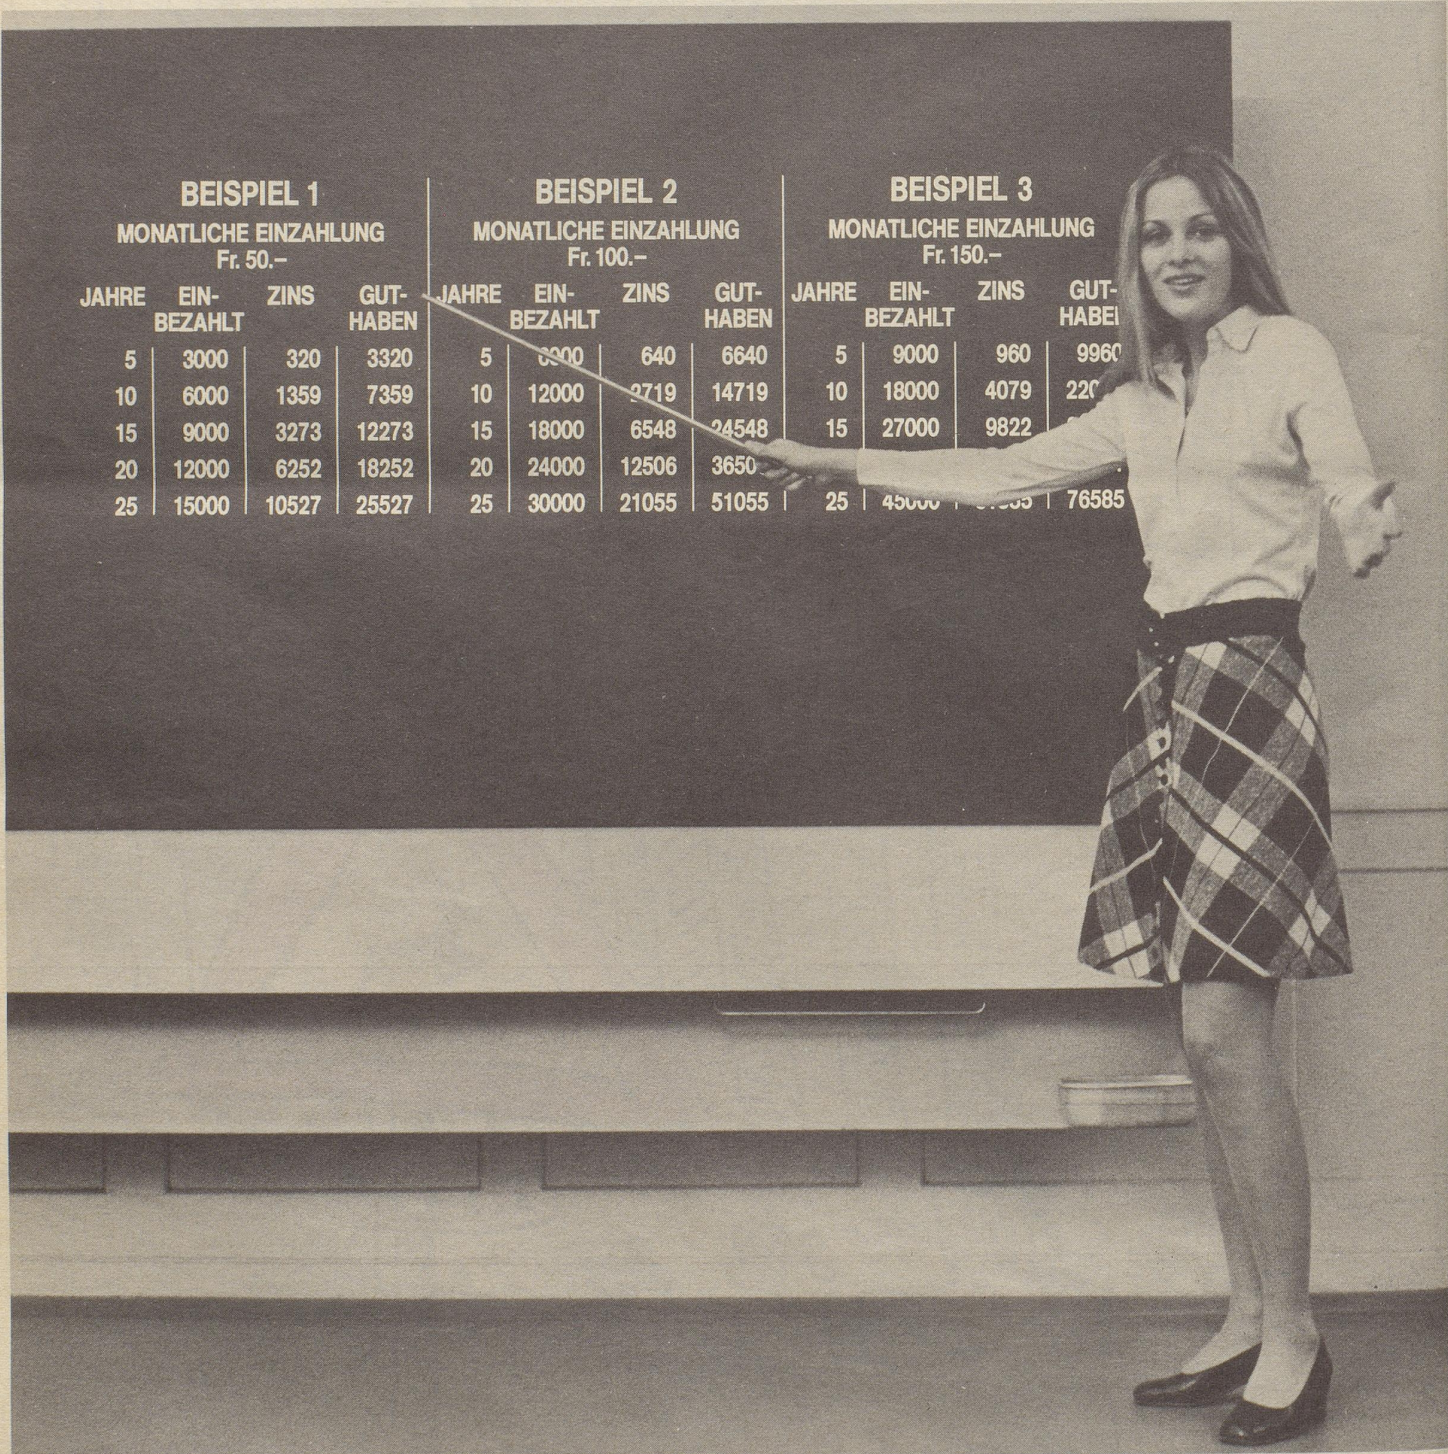 BEISPIEL 1
MONATLICHE EINZAHLUNG
Fr. 50.–
JAHRE EIN- ZINS GUT-
BEZAHLT HABEN
5 3000 320 3320
10 6000 1359 7359
15 9000 3273 12273
20 12000 6252 18252
25 15000 10527 25527
BEISPIEL 2
MONATLICHE EINZAHLUNG
Fr. 100.–
JAHRE EIN- ZINS GUT-
BEZAHLT HABEN
5 6000 640 6640
10 12000 2719 14719
15 18000 6548 24548
20 24000 12506
25 30000 21055 51055
BEISPIEL 3
MONATLICHE EINZAHLUNG
Fr. 150.–
JAHRE EIN- ZINS GUT-
BEZAHLT HABEN
5 9000 960 9960
10 18000 4079
15 27000 9822
25 45000 76585